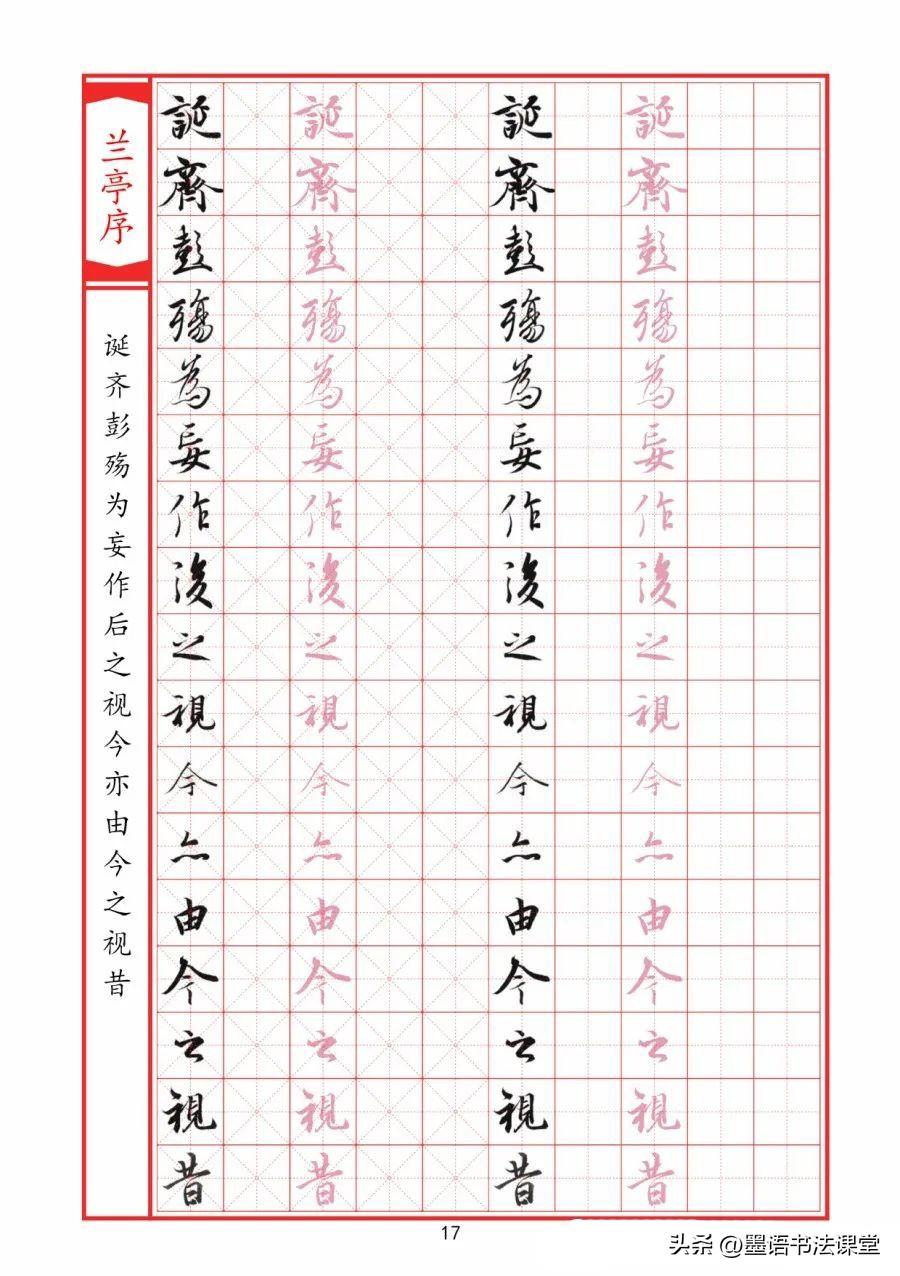 兰亭序
诞齐彭殇为妄作后之视今亦由今之视昔
誕齊彭殤為妄作後之視今亦由今之視昔
誕齊彭殤為妄作後之視今亦由今之視昔
誕齊彭殤為妄作後之視今亦由今之視昔
誕齊彭殤為妄作後之視今亦由今之視昔
17
头条 @墨语书法课堂